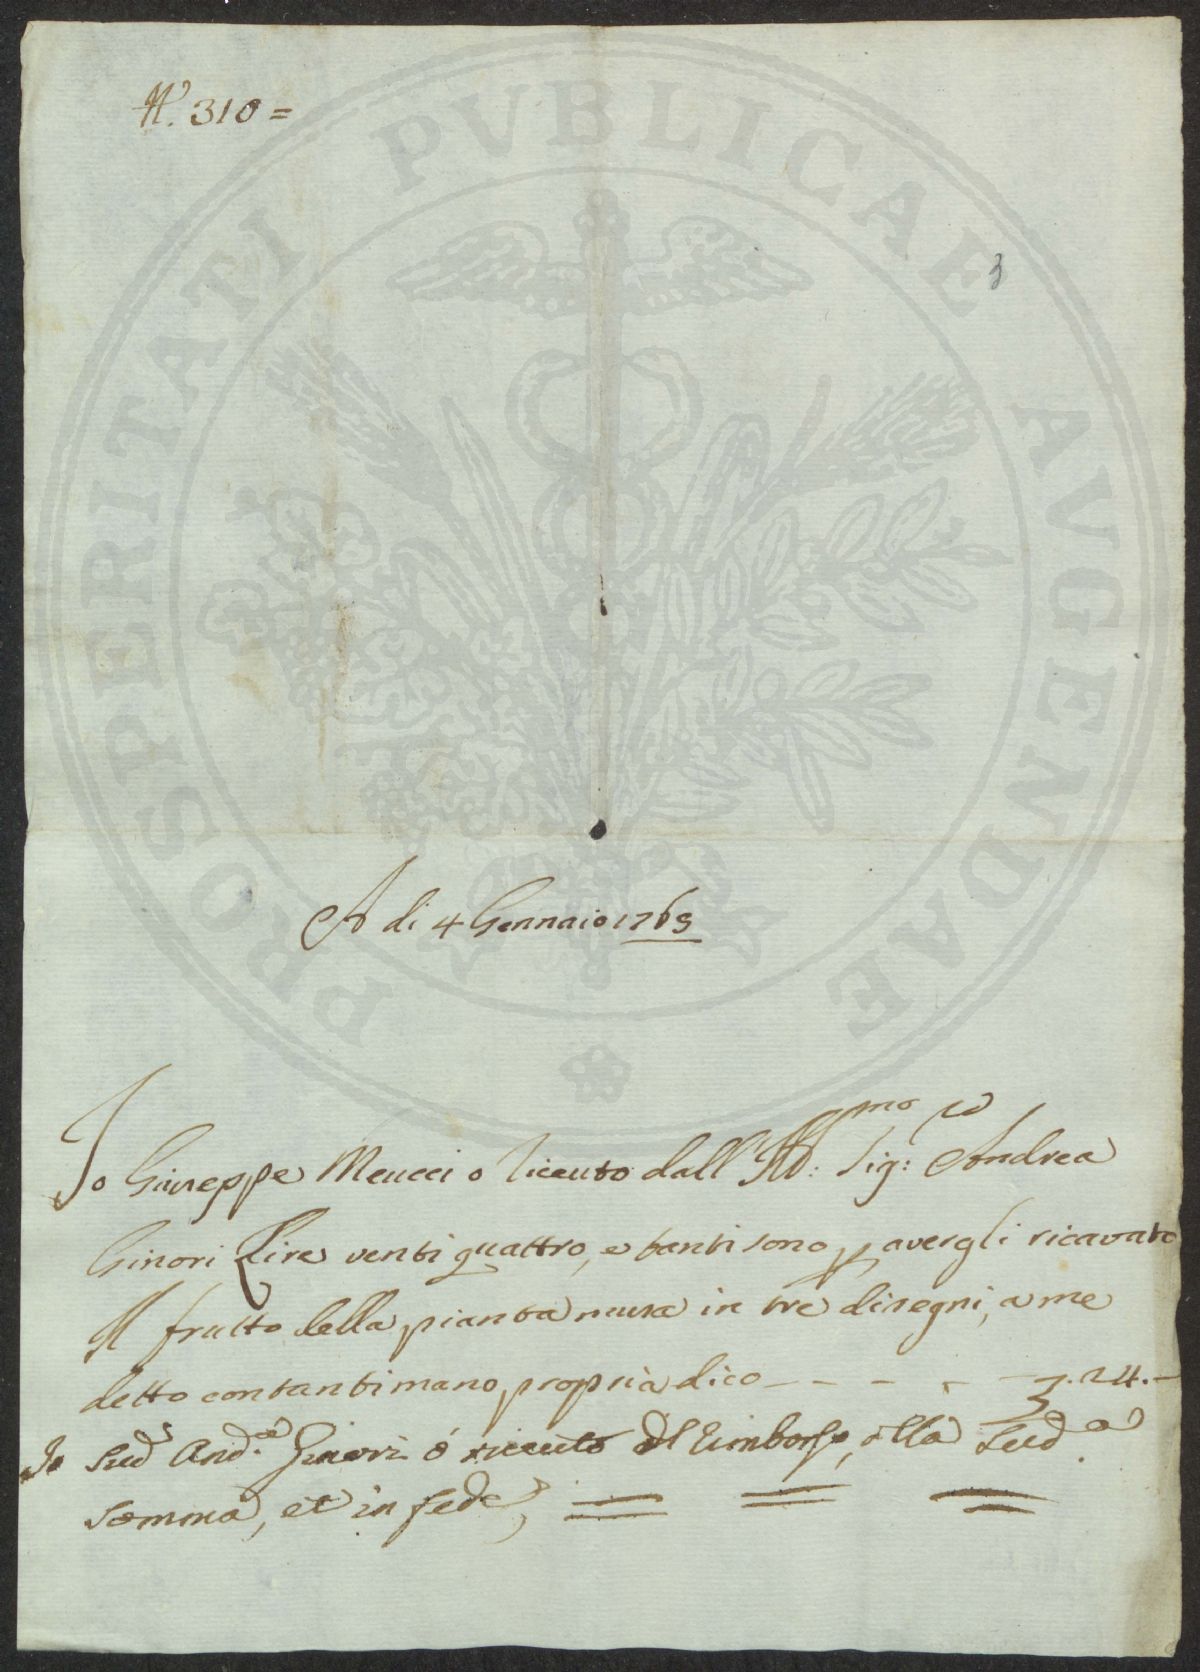 N.° 310 =
3
PROSPERITATI PVBLICAE AVGENDAE
A di 4 Gennaio 1765
Io Giuseppe Meucci o riceuto dall' Ill:mo Sig:re Andrea
Ginori Lire venti quattro, e tanti sono p avergli ricavato
Il frutto della pianta musa in tre disegni, a me
detto contanti mano propria dico - - - - - 24. -
Io Sud.o And.a Ginori ó riceuto il rimborso, della Sud.a
somma, et in fede,